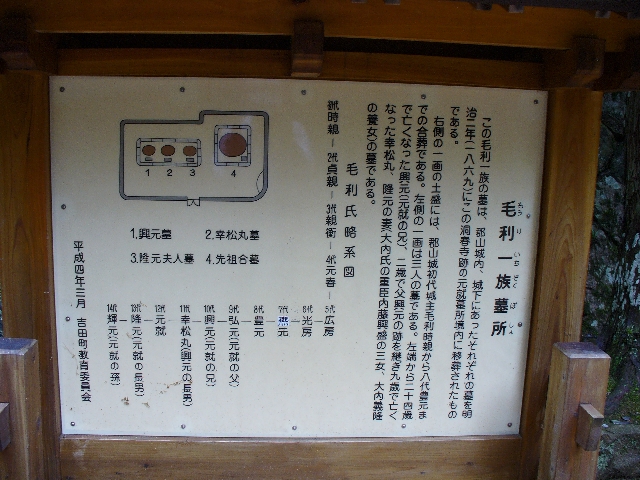 毛利一族墓所
もうり いちぞく ぼしょ
この毛利一族の墓は、郡山城内、城下にあったそれぞれの墓を明
治二年(一八六九)にこの洞春寺跡の元就墓所境内に移葬されたもの
である。
右側の一画の土盛には、郡山城初代城主毛利時親から八代豊元ま
での合葬である。左側の一画は三人の墓である。左端から二十四歳
で亡くなった興元(元就の兄)、二歳で父興元の跡を継ぎ九歳で亡く
なった幸松丸、隆元の妻(大内氏の重臣内藤興盛の三女、大内義隆
の養女)の墓である。
毛利氏略系図
初代時親―2代貞親―3代親衡―4代元春―
5代広房
6代光房
7代熈元
8代豊元
9代弘元(元就の父)
10代興元(元就の兄)
11代幸松丸(興元の長男)
12代元就
13代隆元(元就の長男)
14代輝元(元就の孫)
1 2 3 4
1.興元墓 2.幸松丸墓
3.隆元夫人墓 4.先祖合墓
平成四年三月 吉田町教育委員会